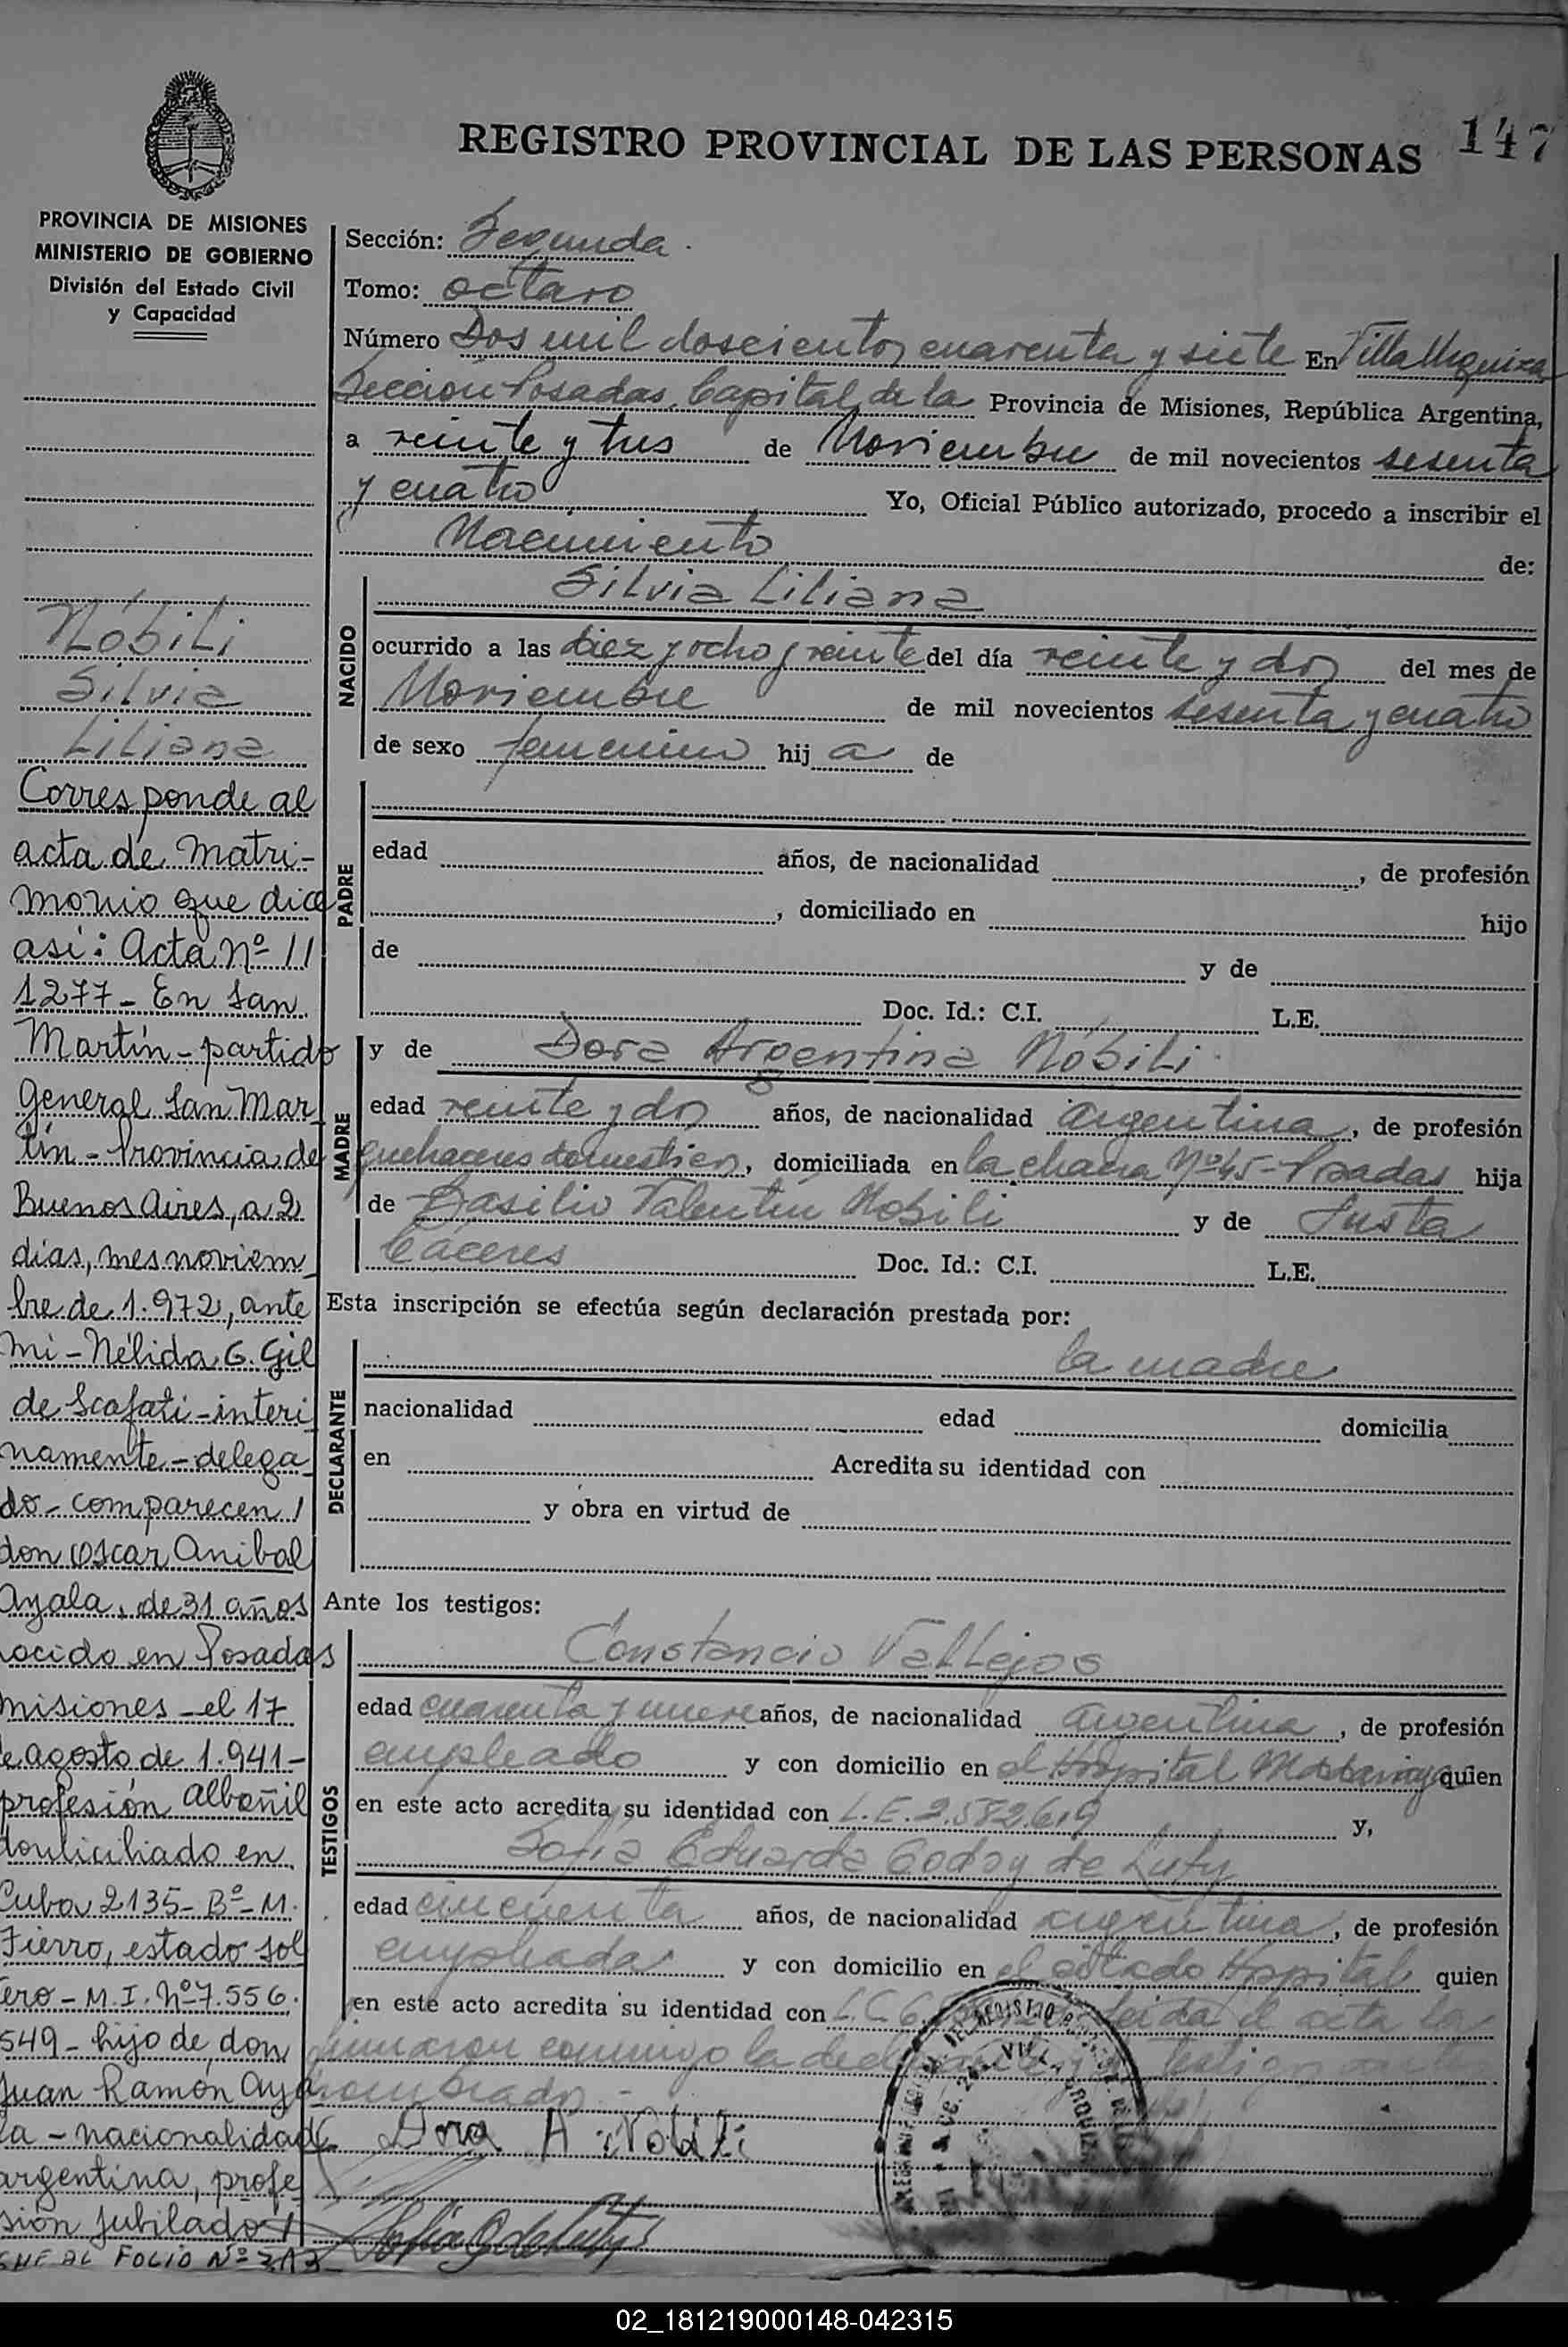 REGISTRO PROVINCIAL DE LAS PERSONAS 147
PROVINCIA DE MISIONES
MINISTERIO DE GOBIERNO
División del Estado Civil
y Capacidad
Nóbili
Silvia
Liliana
Corresponde al
acta de Matri-
monio que dice
así: Acta Nº 11
1277- En San
Martín - partido
General San Mar
tín - Provincia de
Buenos Aires, a 2
días, mes noviem
bre de 1.972, ante
mí - Nélida G. Gil
de Scafati - interi
namente - delega
do - comparecen /
don Oscar Anibal
Ayala, de 31 años
nacido en Posadas
Misiones - el 17
de agosto de 1.941-
profesión Albañil
domiciliado en
Cuba 2135 - Bº - M.
Fierro, estado sol
tero - M.I. Nº 7.556.
549 - hijo de don
Juan Ramón Aya
la - nacionalidad
argentina, profe
sión jubilado
AL FOLIO Nº 313
Sección: Segunda.
Tomo: octavo
Número Dos mil doscientos cuarenta y siete En Villa Urquiza
Sección Posadas, Capital de la Provincia de Misiones, República Argentina,
a veinte y tres de Noviembre de mil novecientos sesenta
y cuatro Yo, Oficial Público autorizado, procedo a inscribir el
Nacimiento de:
NACIDO
Silvia Liliana
ocurrido a las diez y ocho y veinte del día veinte y dos del mes de
Noviembre de mil novecientos sesenta y cuatro
de sexo femenino hij a de
PADRE
edad años, de nacionalidad , de profesión
, domiciliado en hijo
de y de
Doc. Id.: C.I. L.E.
MADRE
y de Dora Argentina Nóbili
edad veinte y dos años, de nacionalidad argentina, de profesión
quehaceres domésticos, domiciliada en la chacra Nº 45 - Posadas hija
de Basilio Valentín Nobili y de Justa
Cáceres Doc. Id.: C.I. L.E.
Esta inscripción se efectúa según declaración prestada por:
DECLARANTE
la madre
nacionalidad edad domicilia
en Acredita su identidad con
y obra en virtud de
Ante los testigos:
TESTIGOS
Constancio Vallejos
edad cuarenta y nueve años, de nacionalidad argentina, de profesión
empleado y con domicilio en el Hospital Madariaga quien
en este acto acredita su identidad con L.E. 2.582.619 y,
Sofía Eduarda Godoy de Luty
edad cincuenta años, de nacionalidad argentina, de profesión
empleada y con domicilio en el citado Hospital quien
en este acto acredita su identidad con L.C. 6. leída el acta la
firmaron conmigo la testigos
nombrados -
Dora A Nobili
02_181219000148-042315